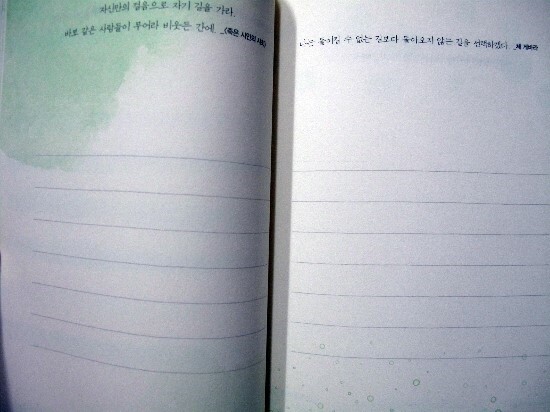 자신만의 걸음으로 자기 길을 가라.
바보 같은 사람들이 무어라 비웃든 간에. _〈죽은 시인의 사회〉
돌이킬 수 없는 길보다 돌아오지 않는 길을 선택하겠다. _체 게바라